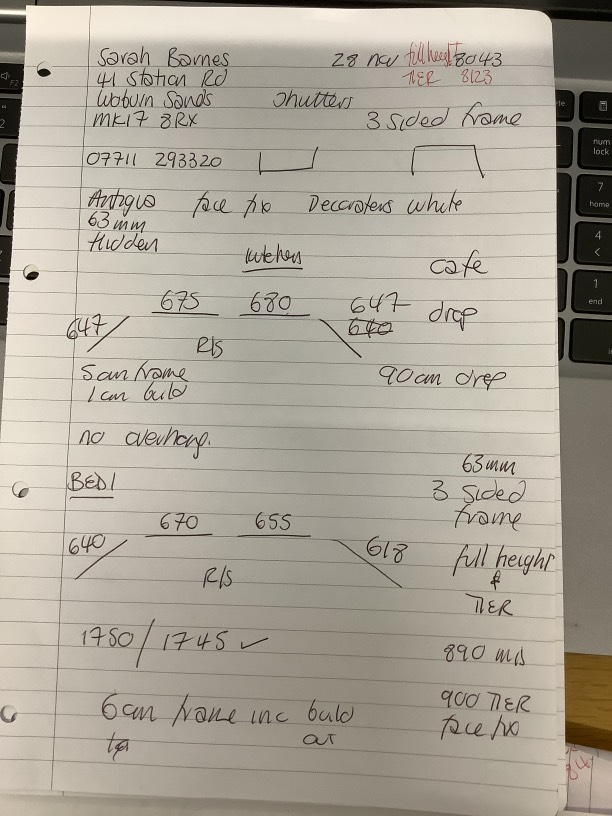 Sarah Barnes 28 nov full height 8043
41 Station Rd TIER 8123
Woburn Sands Shutters
MK17 8RX 3 sided frame
07711 293320
Antigua face fix Decorators white
63mm
Hidden
Kitchen cafe
675 680 647 drop
647 640
R/S
5cm frame 90cm drop
1cm build
no overhang.
BED 1 63mm
3 sided
670 655 frame
640 618 full height
R/S &
TIER
1750/1745 ✓ 890 m/s
6cm frame inc build 900 TIER
out face fix
num
lock
7
home
4
<
1
end